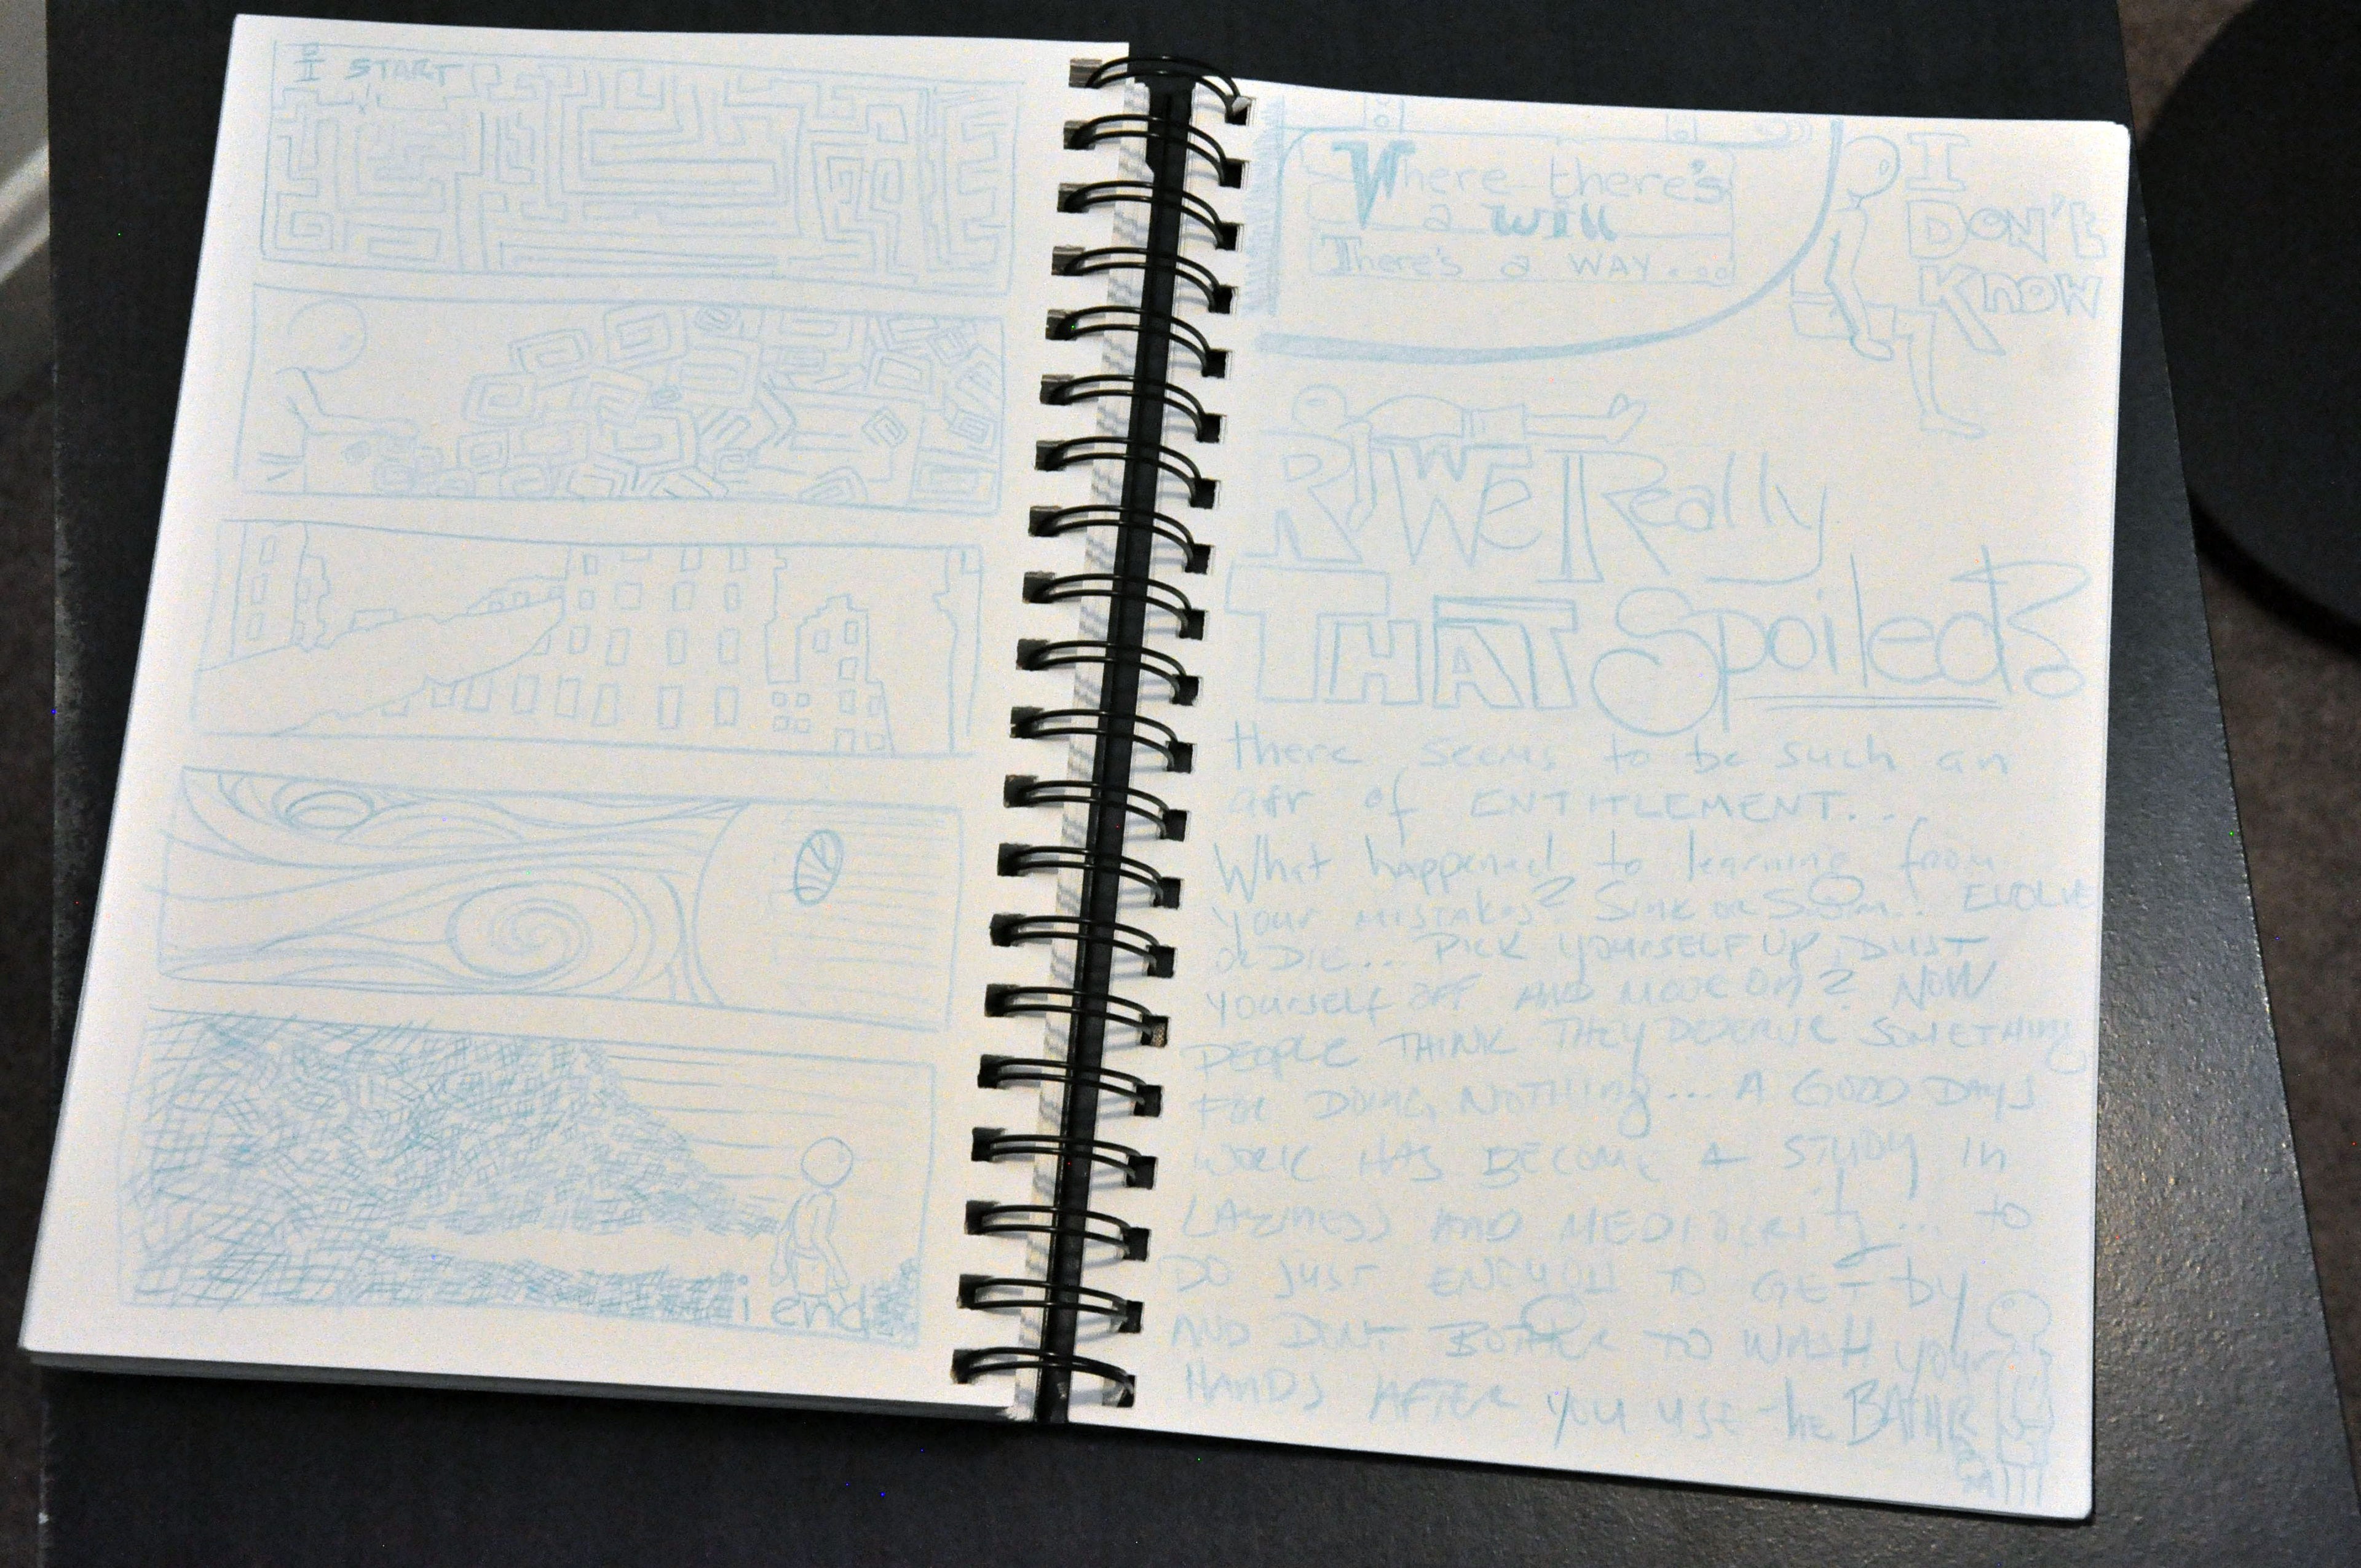 I START
i end
Where there's
a will
There's a WAY...
I
DON'T
KNOW
R WE Really
THAT Spoiled?
there seems to be such an
air of ENTITLEMENT...
What happened to learning from
your mistakes? Sink or Swim... EVOLVE
or DIE... PICK YOURSELF UP, DUST
YOURSELF OFF AND MOVE ON? NOW
PEOPLE THINK THEY DESERVE SOMETHING
FOR DOING NOTHING... A GOOD DAYS
WORK HAS BECOME A STUDY IN
LAZINESS AND MEDIOCRITY... to
DO JUST ENOUGH TO GET by
AND DON'T BOTHER TO WASH your
HANDS AFTER you use the